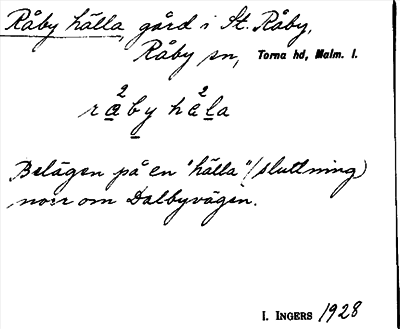 Råby hälla, gård i St. Råby,
Råby sn, Torna hd, Malm. l.
råby häla
2 2
Belägen på en "hälla" (sluttning)
norr om Dalbyvägen.
I. INGERS 1928